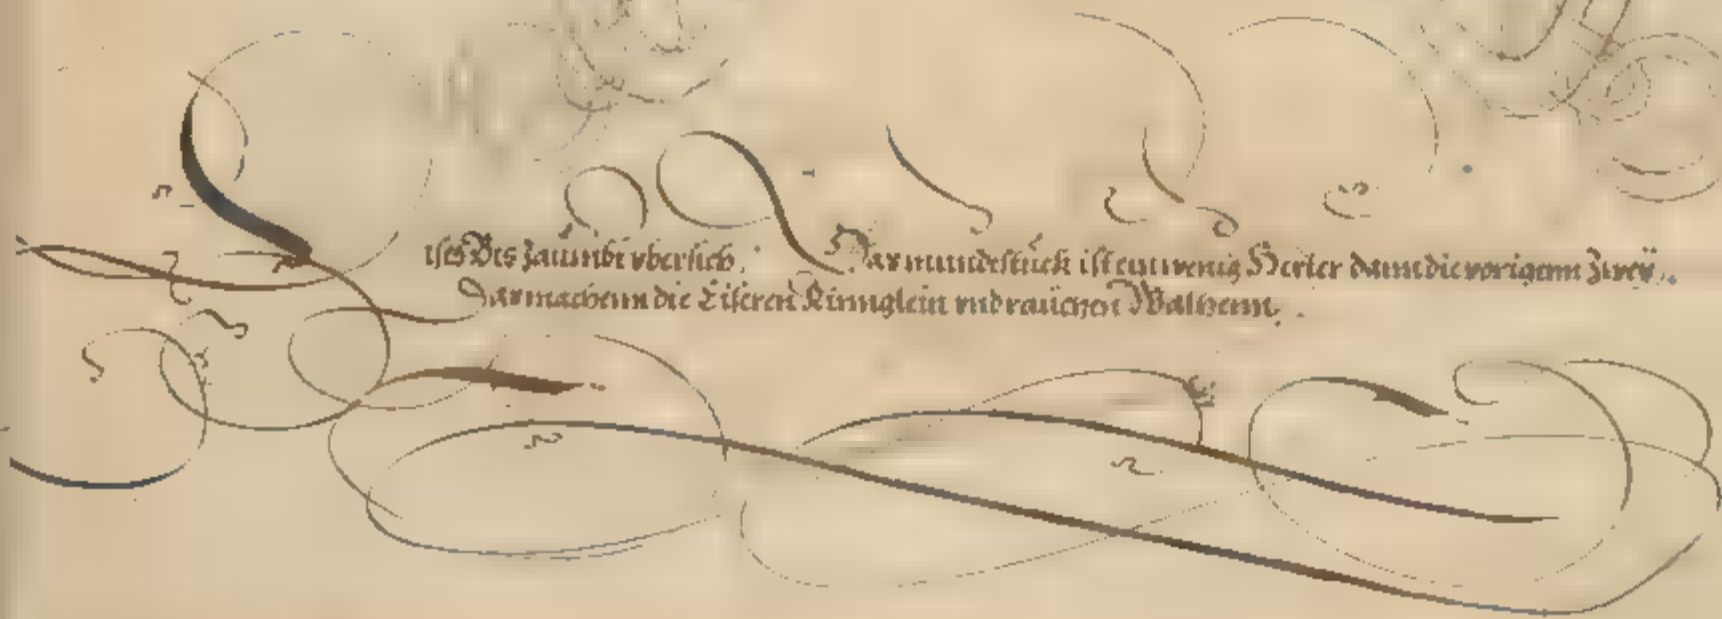 ises Bis zäumbt vbersich. Das mundtstuck ist ein wenig Herter dann die vorigenn Zweÿ.
Das machenn die Eiseren Ringglein vnd rauchen Waltzenn.